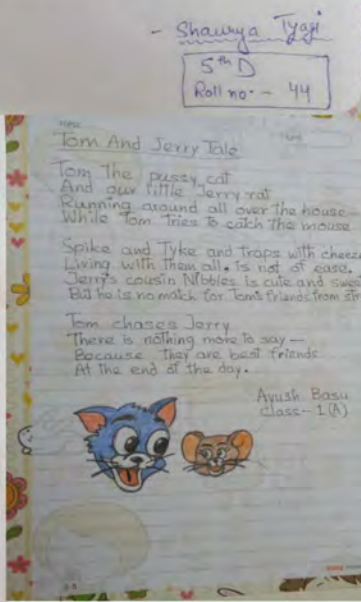 - Shaurya Tyagi
5th D
Roll no. - 44
Tom And Jerry Tale
Tom the pussy cat
And our little Jerry rat
Running around all over the house -
While Tom tries to catch the mouse
Spike and Tyke and traps with cheeze
Living with them all. is not of ease.
Jerry's cousin Nibbles is cute and sweet
But he is no match for Tom's friends from
Tom chases Jerry
There is nothing more to say —
Because they are best friends
At the end of the day.
Ayush Basu
Class - 1 (A)